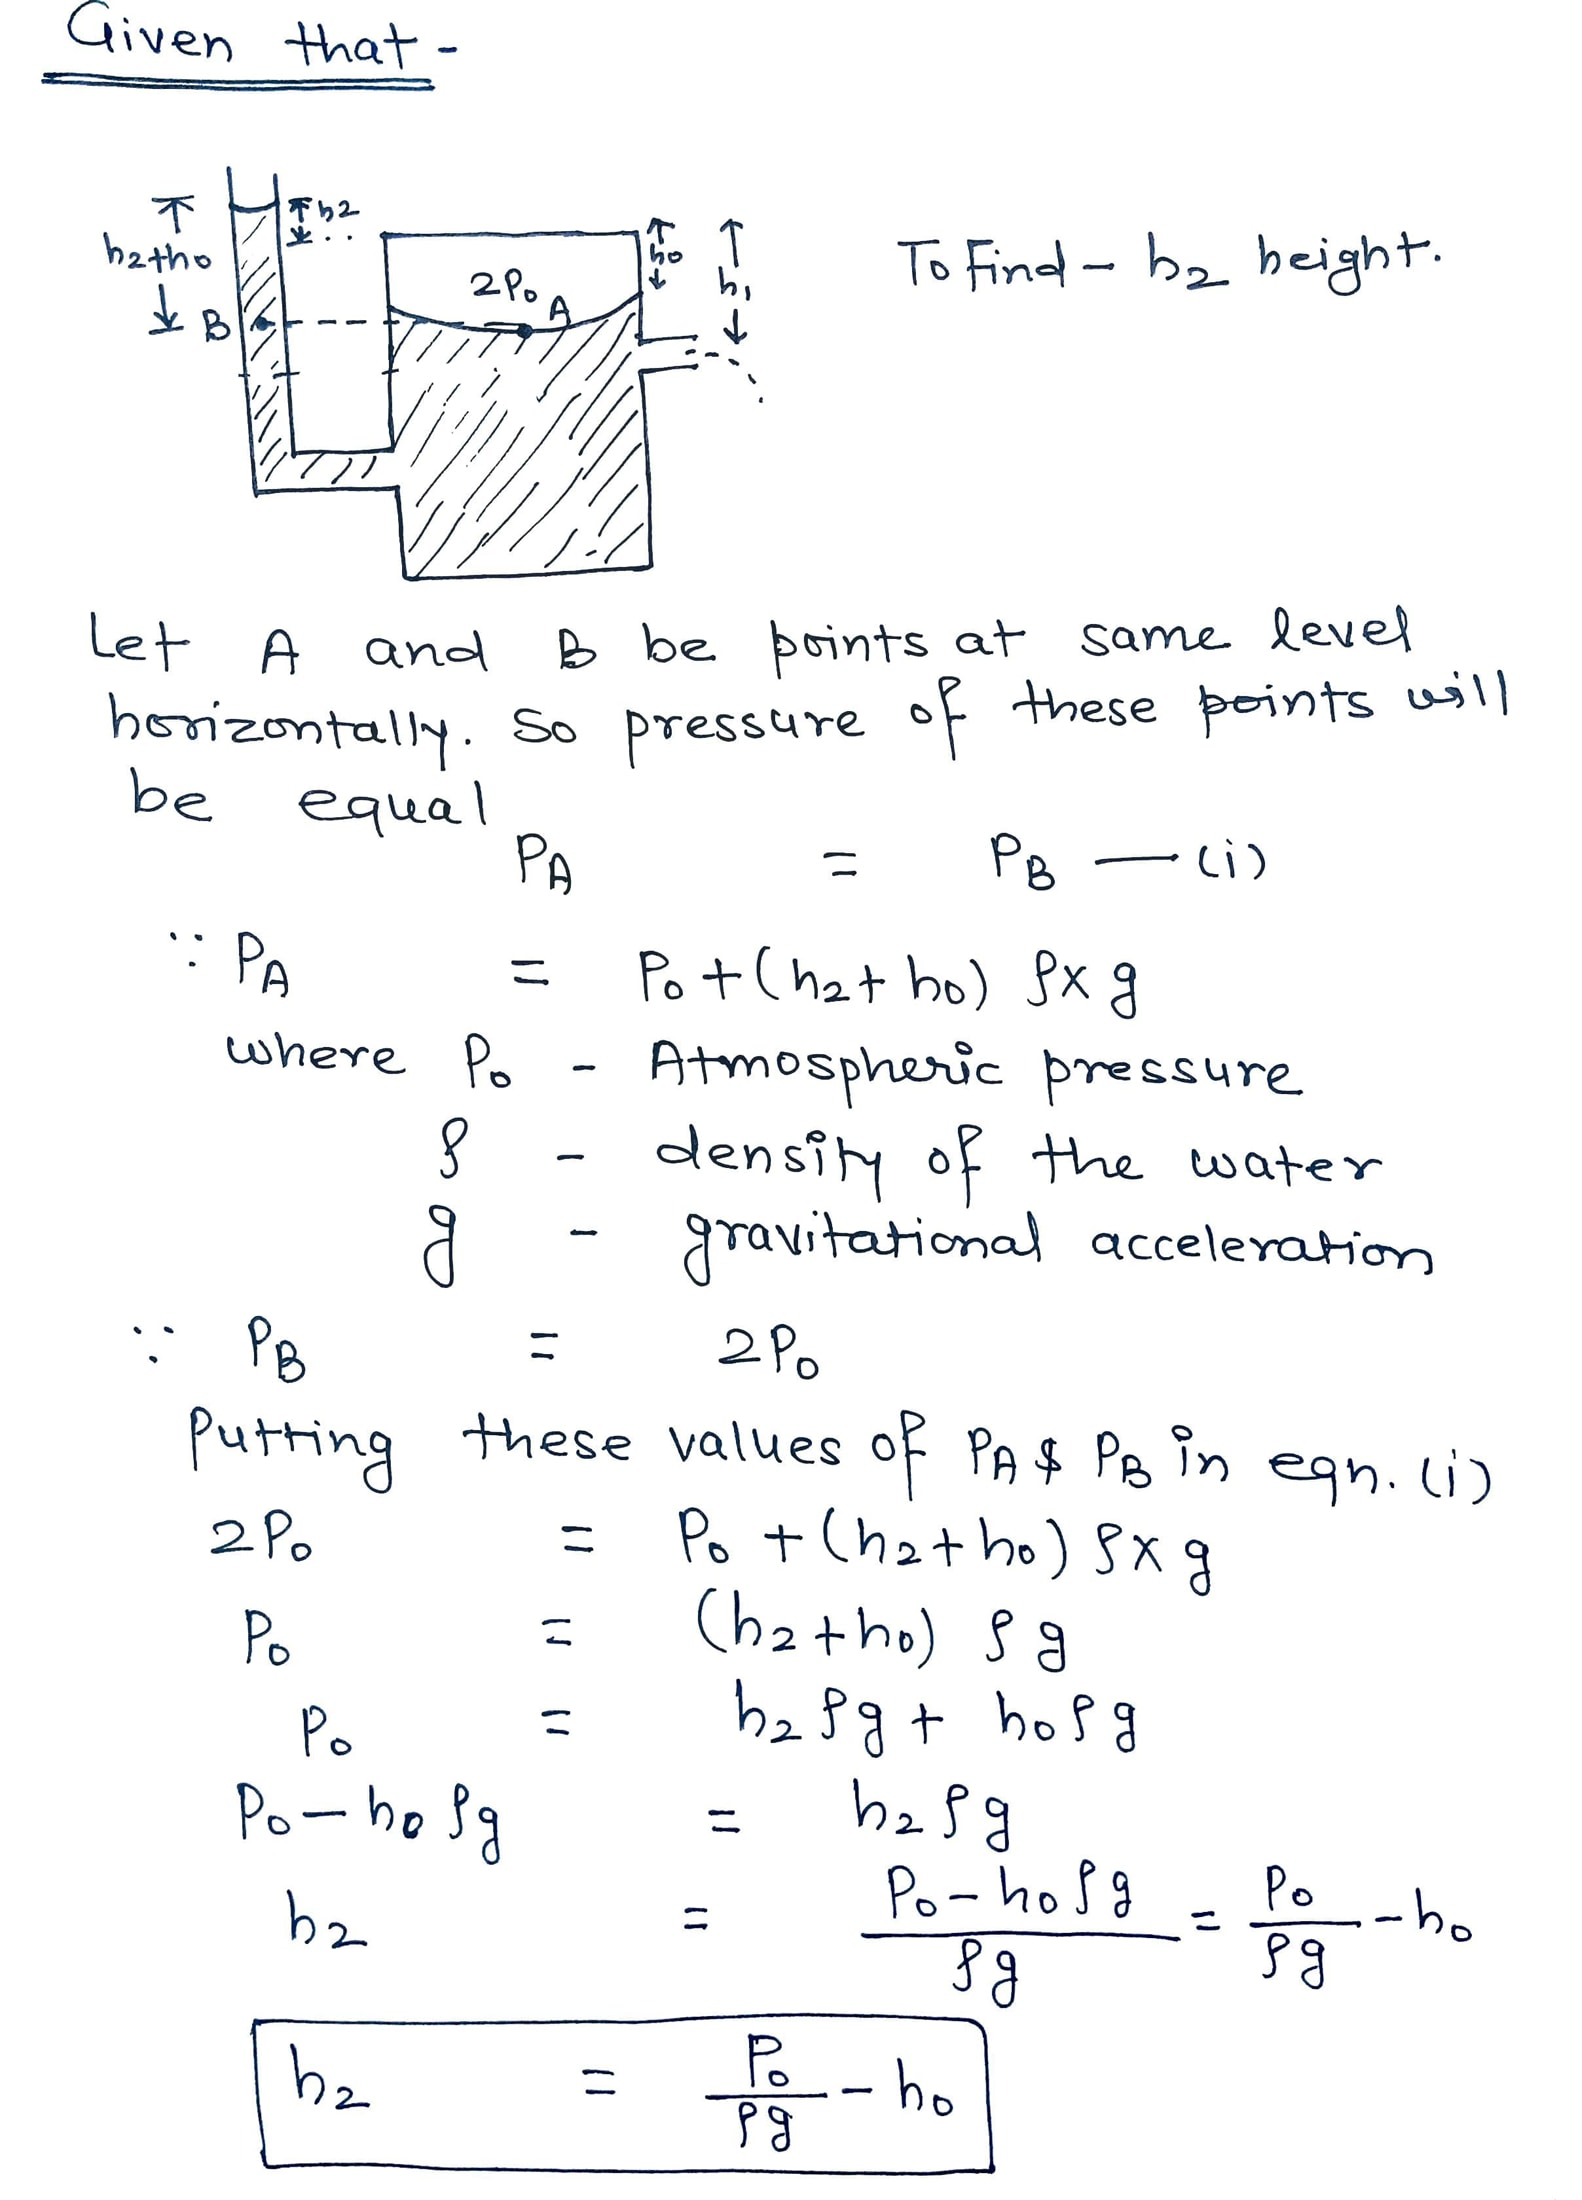 Given that -
h2
h2+h0
h0
h1
2P0
A
B
To Find - h2 height.
Let A and B be points at same level
horizontally. So pressure of these points will
be equal
PA = PB — (i)
∵ PA = P0 + (h2 + h0) ρ x g
where P0 - Atmospheric pressure
ρ - density of the water
g - gravitational acceleration
∵ PB = 2P0
Putting these values of PA & PB in eqn. (i)
2P0 = P0 + (h2 + h0) ρ x g
P0 = (h2 + h0) ρg
P0 = h2ρg + h0ρg
P0 - h0ρg = h2ρg
h2 = (P0 - h0ρg)/ρg = P0/ρg - h0
h2 = P0/ρg - h0